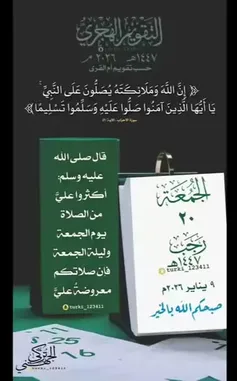 التقويم الهجري
١٤٤٧هـ ٢٠٢٦م
حسب تقويم أم القرى
﴿ إِنَّ اللَّهَ وَمَلَائِكَتَهُ يُصَلُّونَ عَلَى النَّبِيِّ ۚ
يَا أَيُّهَا الَّذِينَ آمَنُوا صَلُّوا عَلَيْهِ وَسَلِّمُوا تَسْلِيمًا ﴾
قال صلى الله
عليه وسلم:
أكثروا عليَّ
من الصلاة
يوم الجمعة
وليلة الجمعة
فإن صلاتكم
معروضةٌ عليَّ
turki_123411
الجمعة
٢٠
رجب
١٤٤٧هـ
turki_123411
٩ يناير ٢٠٢٦م
صبحكم الله بالخير
25
turki_123411